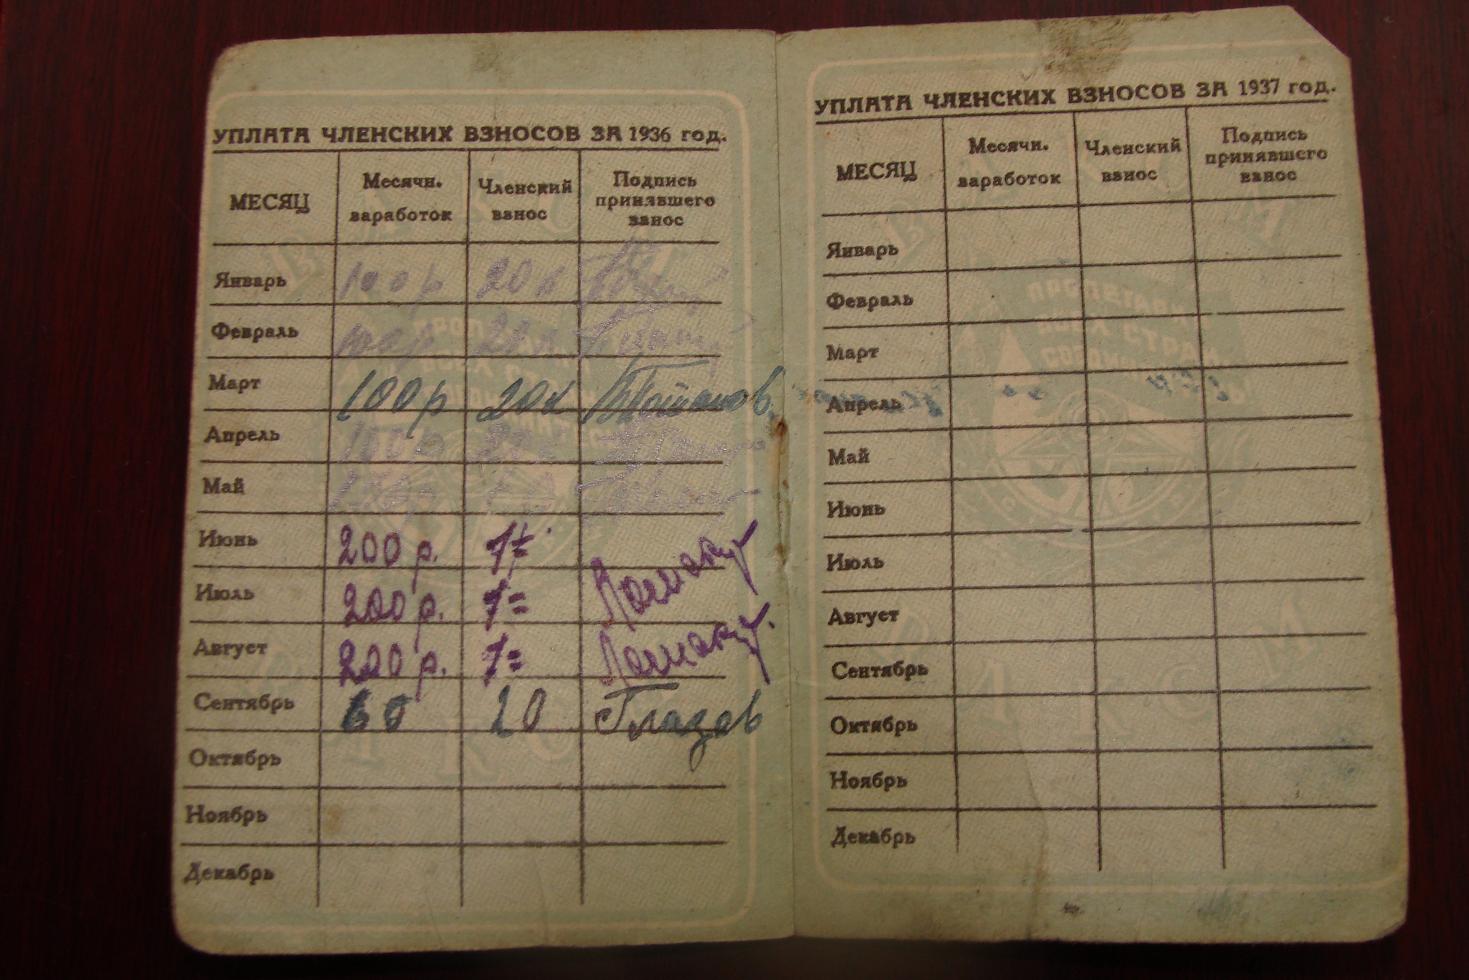 УПЛАТА ЧЛЕНСКИХ ВЗНОСОВ ЗА 1936 год.
МЕСЯЦ Месячн. заработок Членский взнос Подпись принявшего взнос
Январь 100 р 20 к
Февраль 100 р 20 к
Март 100 р 20 к
Апрель 100 р
Май
Июнь 200 р. 1=
Июль 200 р. 1=
Август 200 р. 1=
Сентябрь 60 20 Глазов
Октябрь
Ноябрь
Декабрь
УПЛАТА ЧЛЕНСКИХ ВЗНОСОВ ЗА 1937 год.
МЕСЯЦ Месячн. заработок Членский взнос Подпись принявшего взнос
Январь
Февраль
Март
Апрель
Май
Июнь
Июль
Август
Сентябрь
Октябрь
Ноябрь
Декабрь